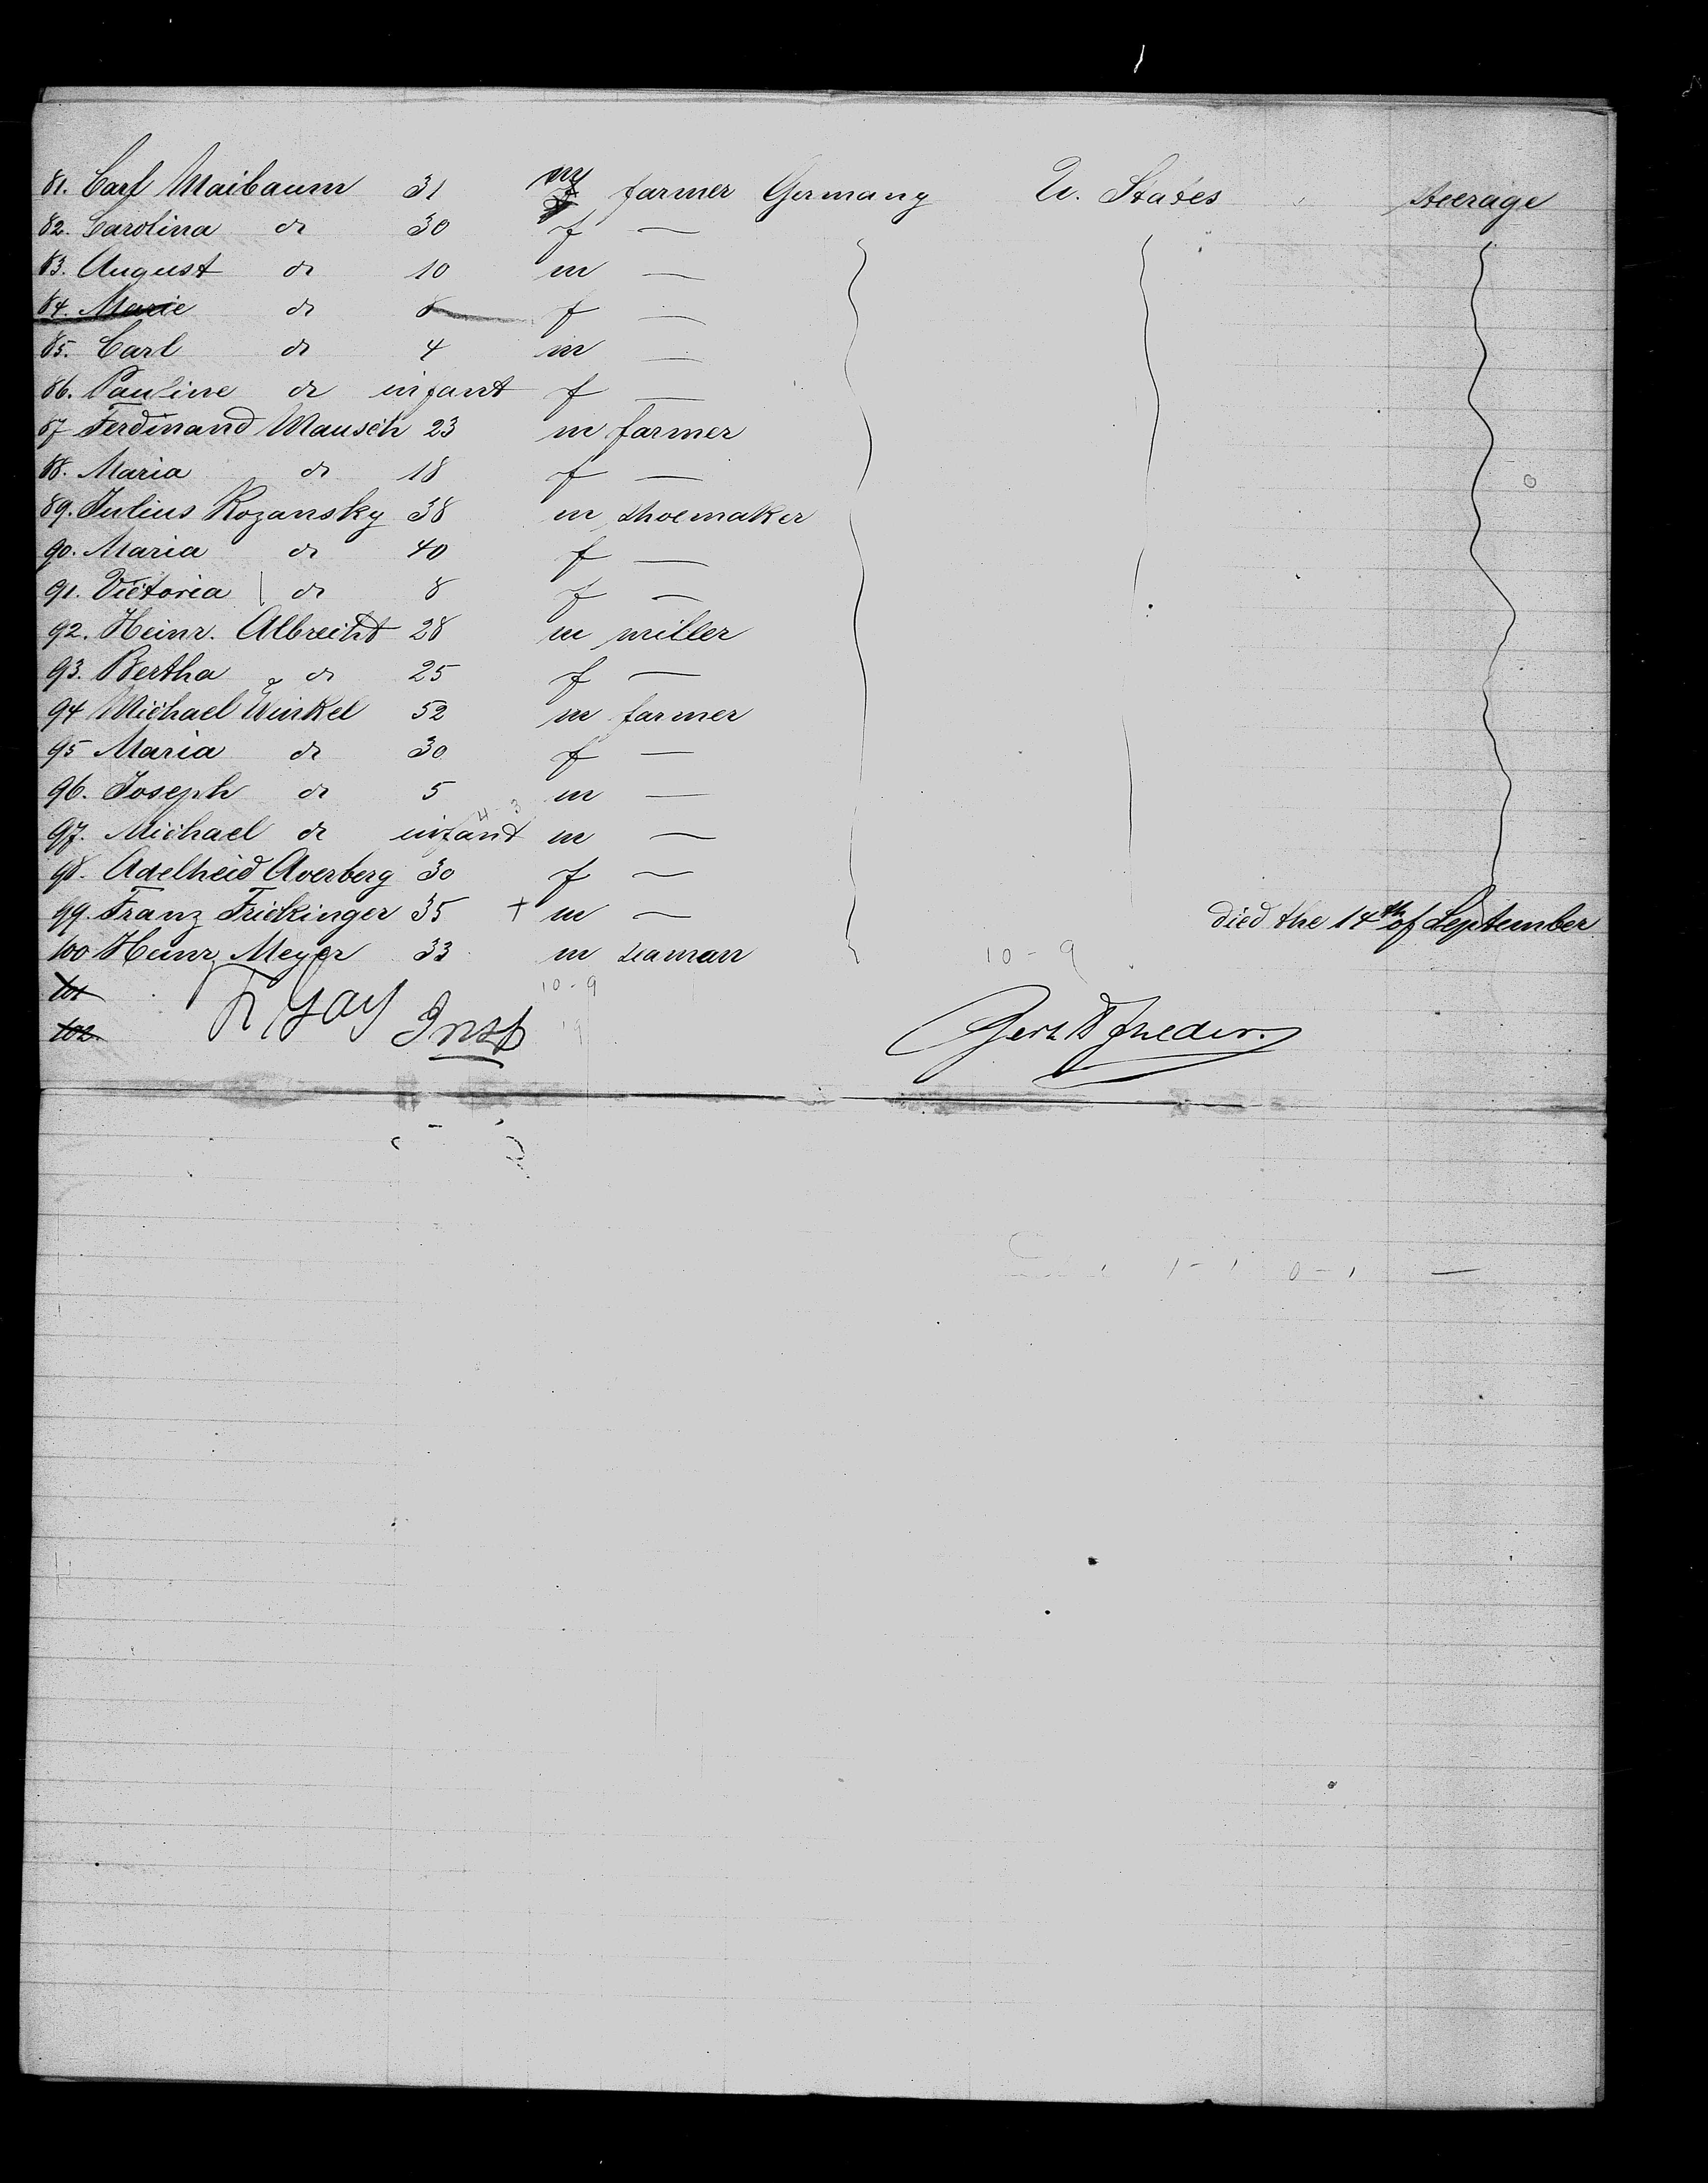 81. Carl Maibaum 31 m farmer Germany U. States Steerage
82. Carolina do 30 f —
83. August do 10 m —
84. Marie do 8 f —
85. Carl do 4 m —
86. Pauline do infant f —
87 Ferdinand Mausch 23 m farmer
88. Maria do 18 f —
89. Julius Rozansky 38 m shoemaker
90. Maria do 40 f —
91. Victoria do 8 f —
92. Heinr. Albrecht 28 m miller
93. Bertha do 25 f —
94 Michael Winkel 52 m farmer
95 Maria do 30 f —
96. Joseph do 5 m —
97. Michael do infant m —
98. Adelheid Averberg 30 f —
99. Franz Frickinger 35 + m — died the 14th of September
100 Heinr. Meyer 33 m seaman 10-9
101 10-9
102 Gay Insp